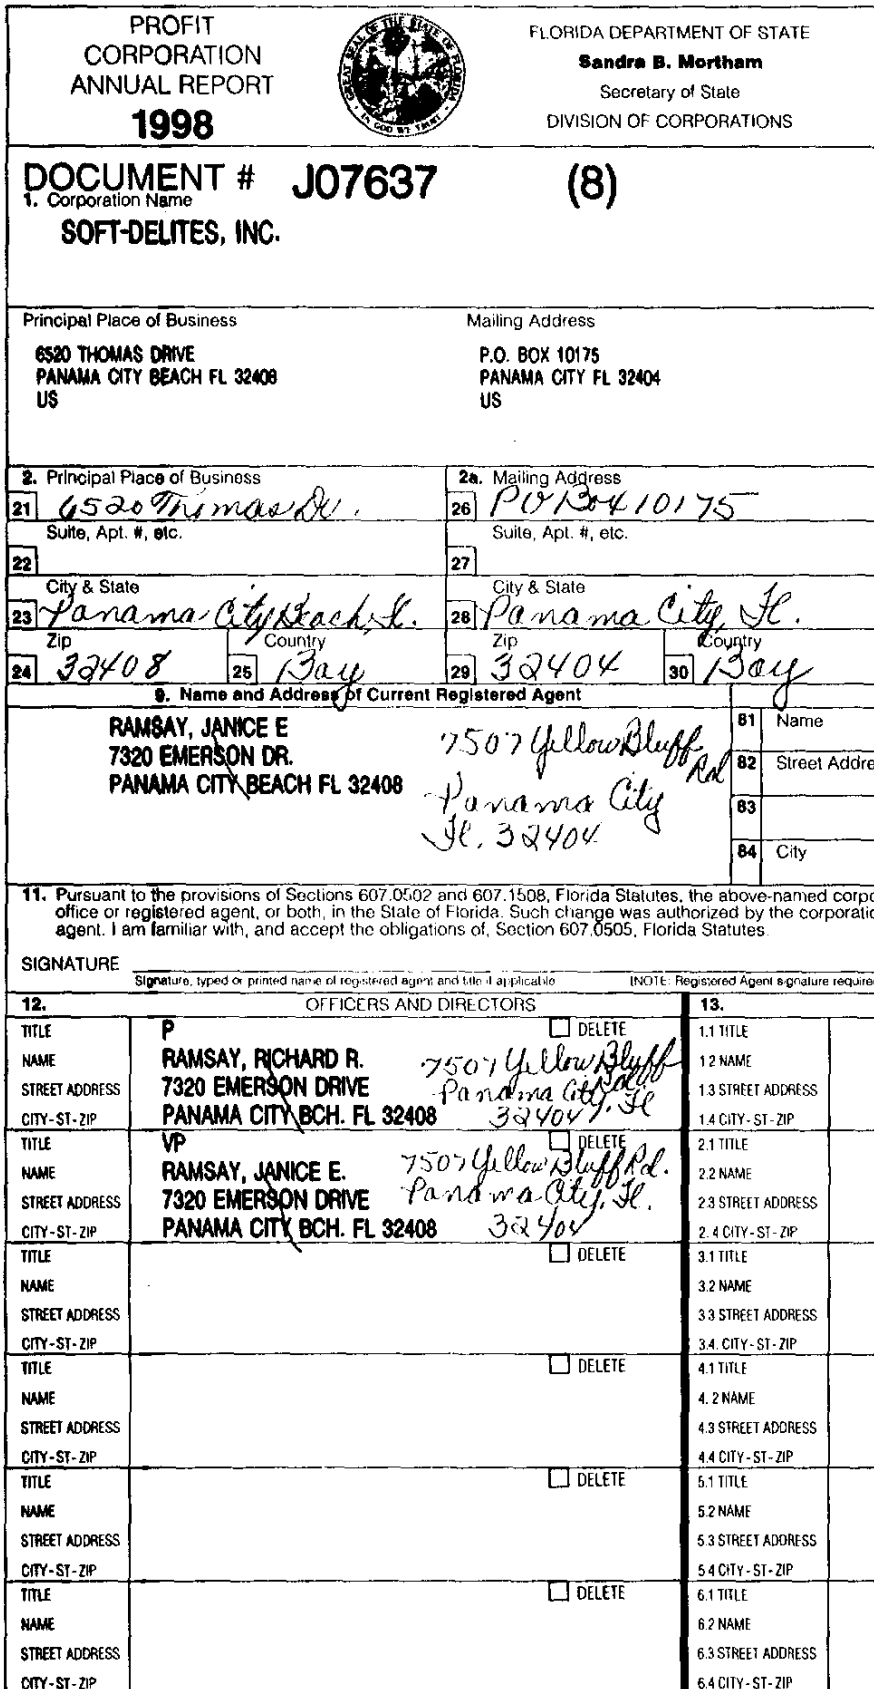 PROFIT
CORPORATION
ANNUAL REPORT
1998
GREAT SEAL OF THE STATE OF FLORIDA
IN GOD WE TRUST
FLORIDA DEPARTMENT OF STATE
Sandra B. Mortham
Secretary of State
DIVISION OF CORPORATIONS
DOCUMENT # J07637 (8)
1. Corporation Name
SOFT-DELITES, INC.
Principal Place of Business
6520 THOMAS DRIVE
PANAMA CITY BEACH FL 32408
US
Mailing Address
P.O. BOX 10175
PANAMA CITY FL 32404
US
2. Principal Place of Business
21 6520 Thomas Dr.
Suite, Apt. #, etc.
22
City & State
23 Panama City Beach, Fl.
Zip
24 32408
Country
25 Bay
2a. Mailing Address
26 PO Box 10175
Suite, Apt. #, etc.
27
City & State
28 Panama City, Fl.
Zip
29 32404
Country
30 Bay
9. Name and Address of Current Registered Agent
RAMSAY, JANICE E
7320 EMERSON DR.
PANAMA CITY BEACH FL 32408
7507 Yellow Bluff
Rd
Panama City
Fl. 32404
81 Name
82 Street Addre
83
84 City
11. Pursuant to the provisions of Sections 607.0502 and 607.1508, Florida Statutes, the above-named corpo
office or registered agent, or both, in the State of Florida. Such change was authorized by the corporatio
agent. I am familiar with, and accept the obligations of, Section 607.0505, Florida Statutes.
SIGNATURE
Signature, typed or printed name of registered agent and title if applicable
(NOTE: Registered Agent signature require
12. OFFICERS AND DIRECTORS
13.
TITLE P DELETE
NAME RAMSAY, RICHARD R.
STREET ADDRESS 7320 EMERSON DRIVE
CITY-ST-ZIP PANAMA CITY BCH. FL 32408
7507 Yellow Bluff
Rd
Panama City, Fl
32404
1.1 TITLE
1.2 NAME
1.3 STREET ADDRESS
1.4 CITY-ST-ZIP
TITLE VP DELETE
NAME RAMSAY, JANICE E.
STREET ADDRESS 7320 EMERSON DRIVE
CITY-ST-ZIP PANAMA CITY BCH. FL 32408
7507 Yellow Bluff Rd.
Panama City, Fl.
32404
2.1 TITLE
2.2 NAME
2.3 STREET ADDRESS
2.4 CITY-ST-ZIP
TITLE DELETE
NAME
STREET ADDRESS
CITY-ST-ZIP
3.1 TITLE
3.2 NAME
3.3 STREET ADDRESS
3.4. CITY-ST-ZIP
TITLE DELETE
NAME
STREET ADDRESS
CITY-ST-ZIP
4.1 TITLE
4.2 NAME
4.3 STREET ADDRESS
4.4 CITY-ST-ZIP
TITLE DELETE
NAME
STREET ADDRESS
CITY-ST-ZIP
5.1 TITLE
5.2 NAME
5.3 STREET ADDRESS
5.4 CITY-ST-ZIP
TITLE DELETE
NAME
STREET ADDRESS
CITY-ST-ZIP
6.1 TITLE
6.2 NAME
6.3 STREET ADDRESS
6.4 CITY-ST-ZIP